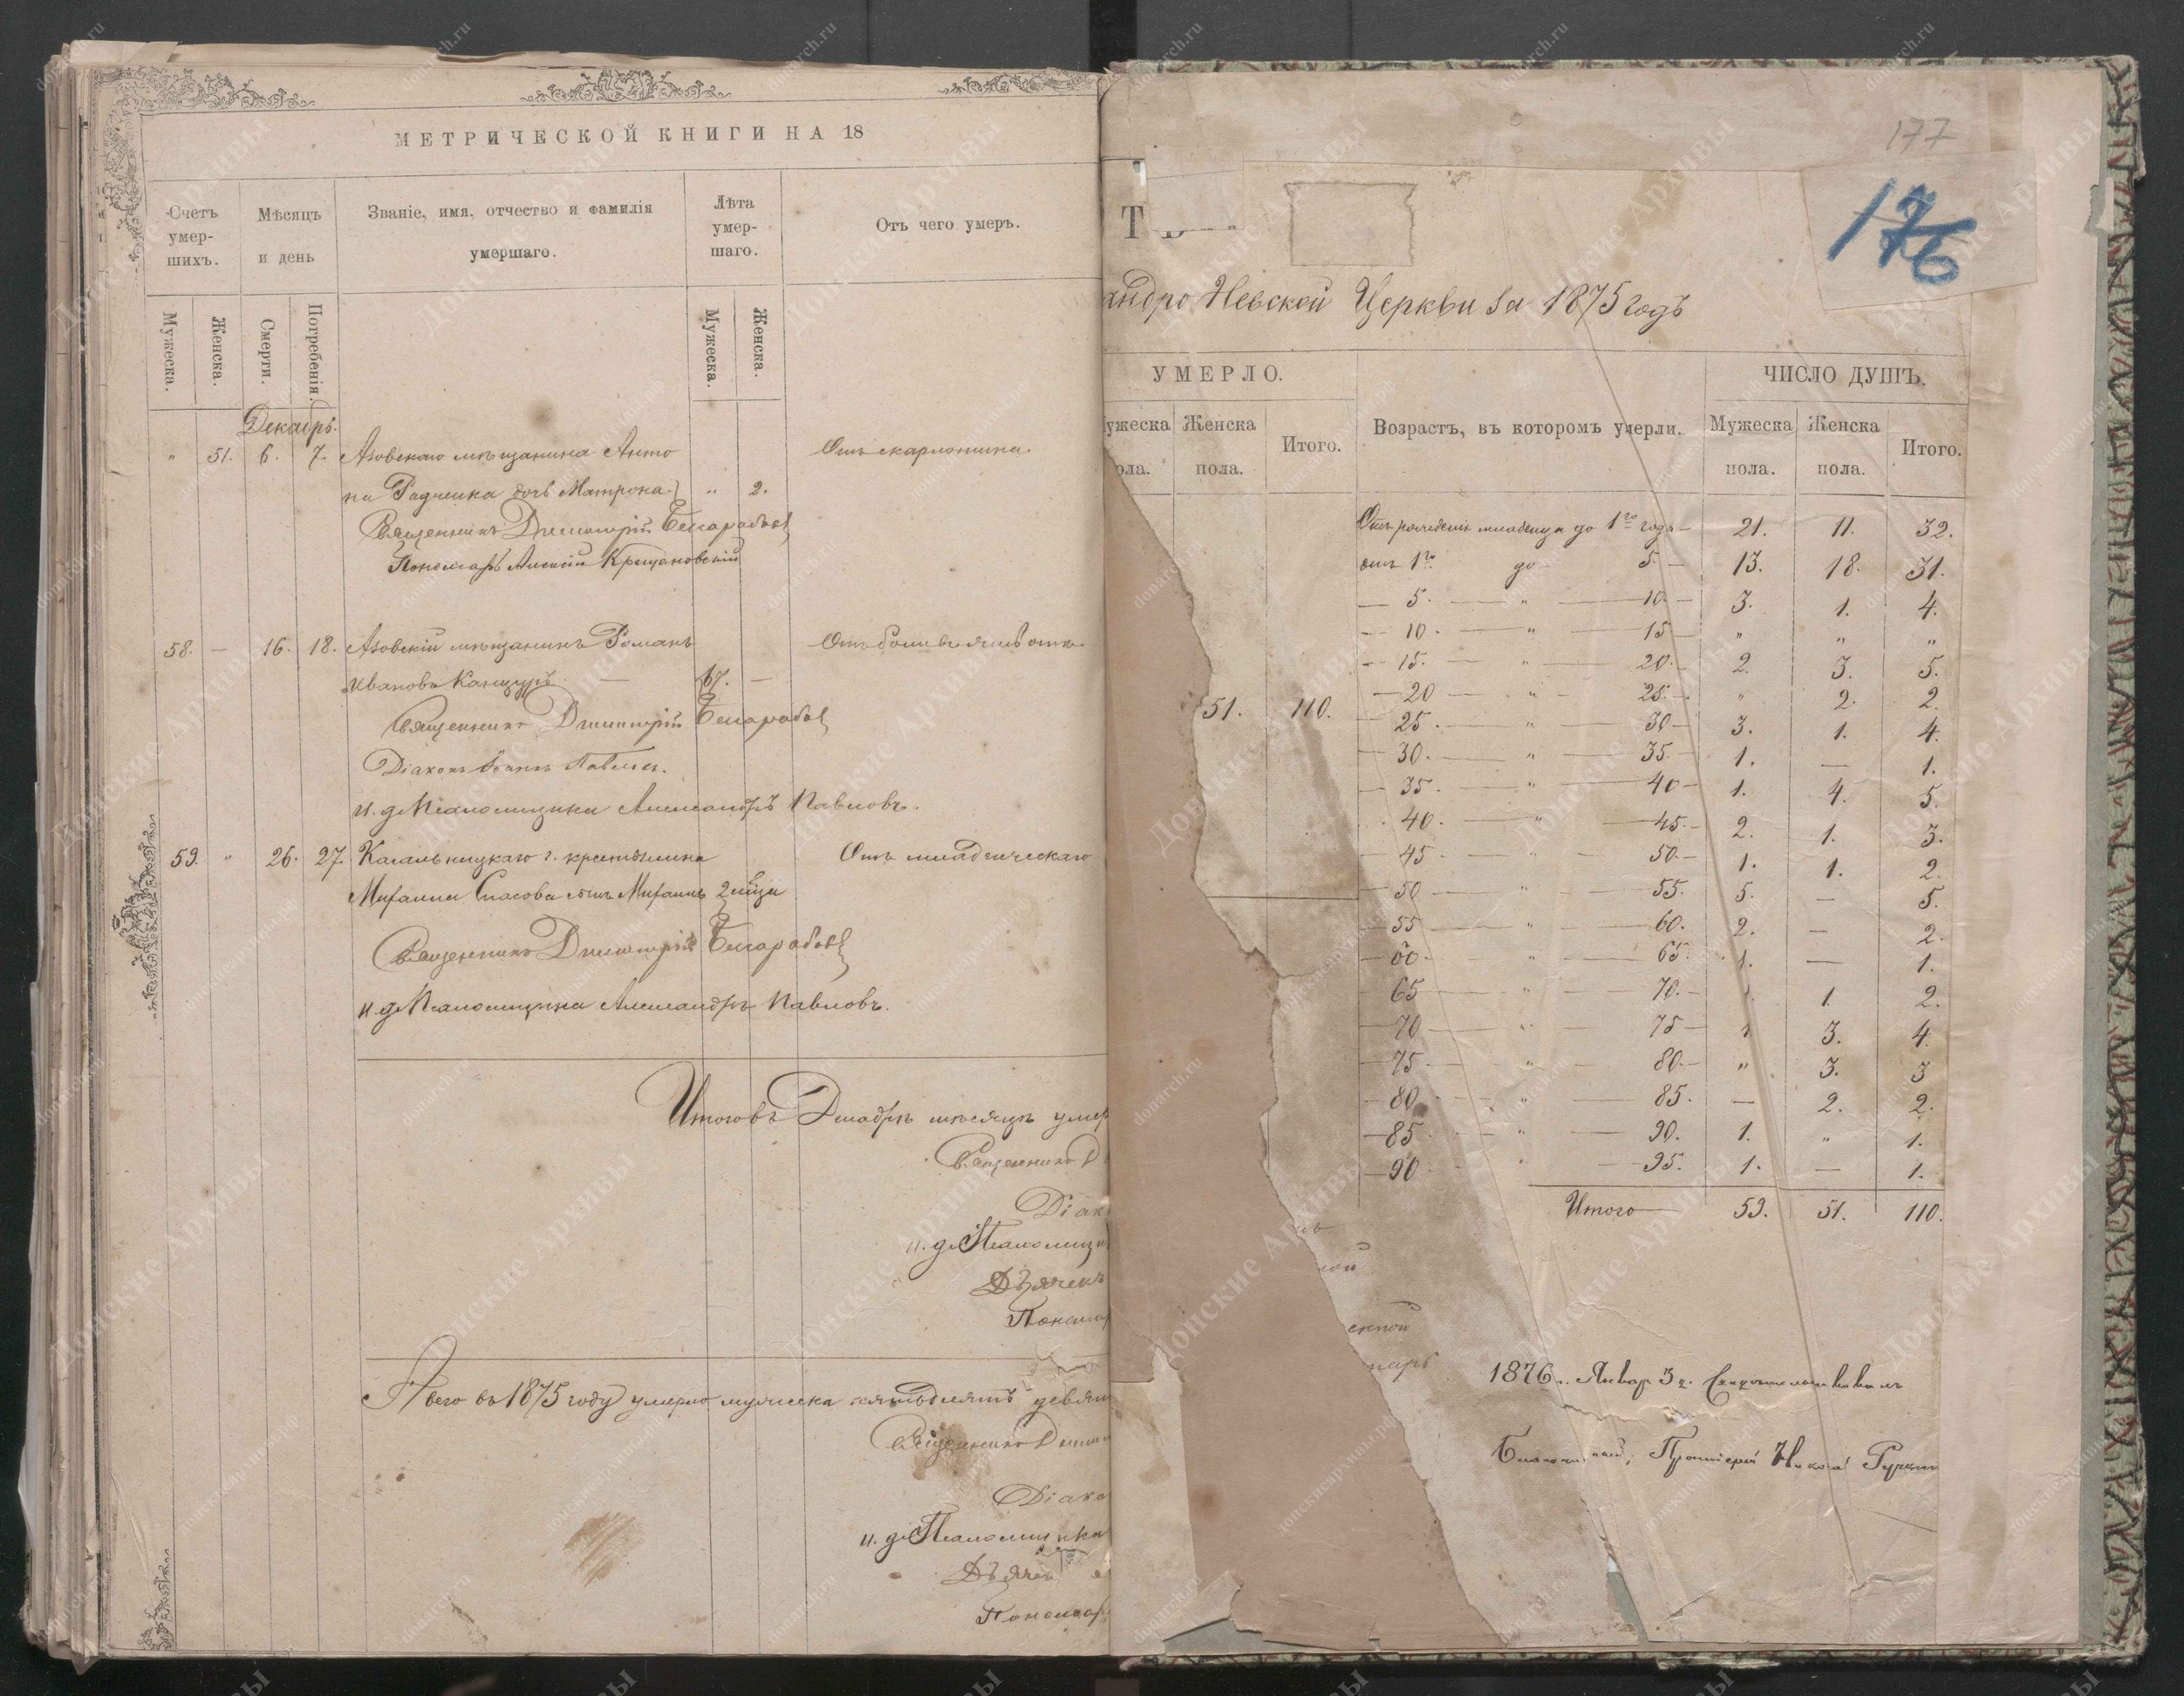 МЕТРИЧЕСКОЙ КНИГИ НА 18
Счетъ умершихъ.
Мѣсяцъ и день
Званіе, имя, отчество и фамилія умершаго.
Лѣта умершаго.
Отъ чего умеръ.
Мужеска.
Женска.
Смерти.
Погребенія.
Мужеска.
Женска.
Декабрь.
" 51. 6. 7. Азовскаго мѣщанина Анто
на Радченка дочь Матрона. " 2. Отъ скарлотина.
Священникъ Димитрій
Пономарь Алексій Крещановскій
58. — 16. 18. Азовскій мѣщанинъ Романъ
Ивановъ 67. — Отъ боли въ животѣ.
Священникъ Димитрій
Діаконъ Іоаннъ Павловъ.
и. д. Псаломщика Александръ Павловъ.
59. " 26. 27. Кагальницкаго г. крестьянина Отъ младенческаго
Михаила Спасова сынъ Михаилъ 2 мѣся
Священникъ Димитрій
и. д. Псаломщика Александръ Павловъ.
Итого въ Декабрѣ мѣсяцѣ умер
Священникъ Д
Діак
и. д. Псаломщи
Дьячекъ
Пономар
А всего въ 1875 году умерло мужеска пятьдесятъ девят
Священникъ Дими
Діако
и. д. Псаломщика
Дьяче
Пономар
177
176
Т
андро Невской Церкви за 1875 годъ
УМЕРЛО.
ЧИСЛО ДУШЪ.
ужеска ола.
Женска пола.
Итого.
Возрастъ, въ которомъ умерли.
Мужеска пола.
Женска пола.
Итого.
51. 110.
Отъ рожденія младенца до 1го года — 21. 11. 32.
отъ 1го до 5. — 13. 18. 31.
— 5. — " — 10. — 3. 1. 4.
— 10. — " — 15 — " " "
— 15. — " — 20. — 2. 3. 5.
— 20 — " — 25. — " 2. 2.
— 25. — " — 30 — 3. 1. 4.
— 30. — " — 35. — 1. — 1.
— 35. — " — 40 — 1. 4. 5.
40. — " — 45. — 2. 1. 3.
— 45 — " — 50. — 1. 1. 2.
— 50 — " — 55. 5. — 5.
— 55 — " — 60. 2. — 2.
— 60. — " — 65. 1. — 1.
— 65 — " — 70. — 1. 1. 2.
— 70 — " — 75 — 1 3. 4.
— 75 — " — 80. — " 3. 3
— 80 — " — 85. — 2. 2.
— 85 — " — 90. 1. " 1.
— 90 — " — 95. 1. — 1.
Итого 59. 51. 110.
1876 г. Январ 3 д. Свидѣтельствовалъ
Благочинный, Протоіерей Никола
Донские Архивы
donarch.ru
донскиеархивы.рф